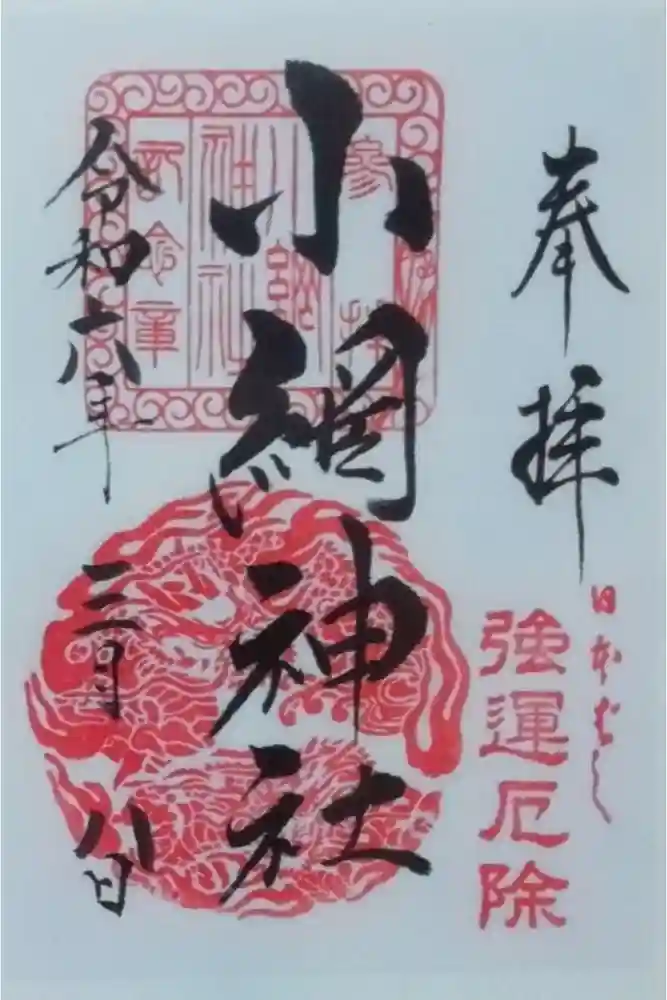 奉拝
日本ばし
強運厄除
参拝
小網神社
記念章
小網神社
令和六年三月八日